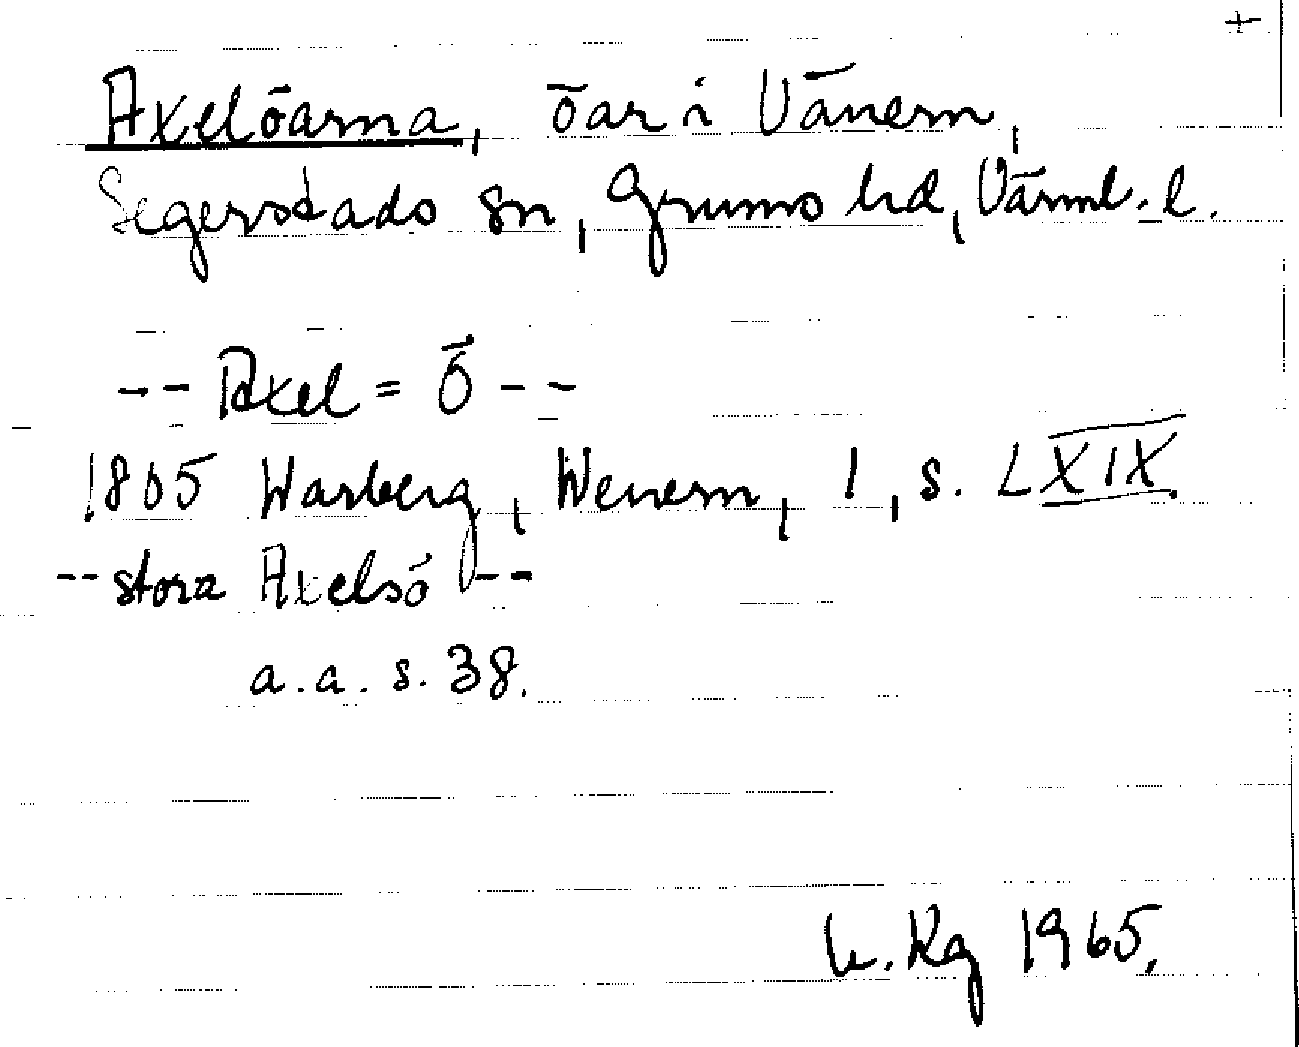 +
Axelöarna, öar i Vänern,
Segerstads sn, Grums hd, Värml. l.
-- Axel = Ö --
1805 Warberg, Wenern, 1, s. LXIX
-- stora Axelsö --
a.a. s. 38.
Kg 1965.